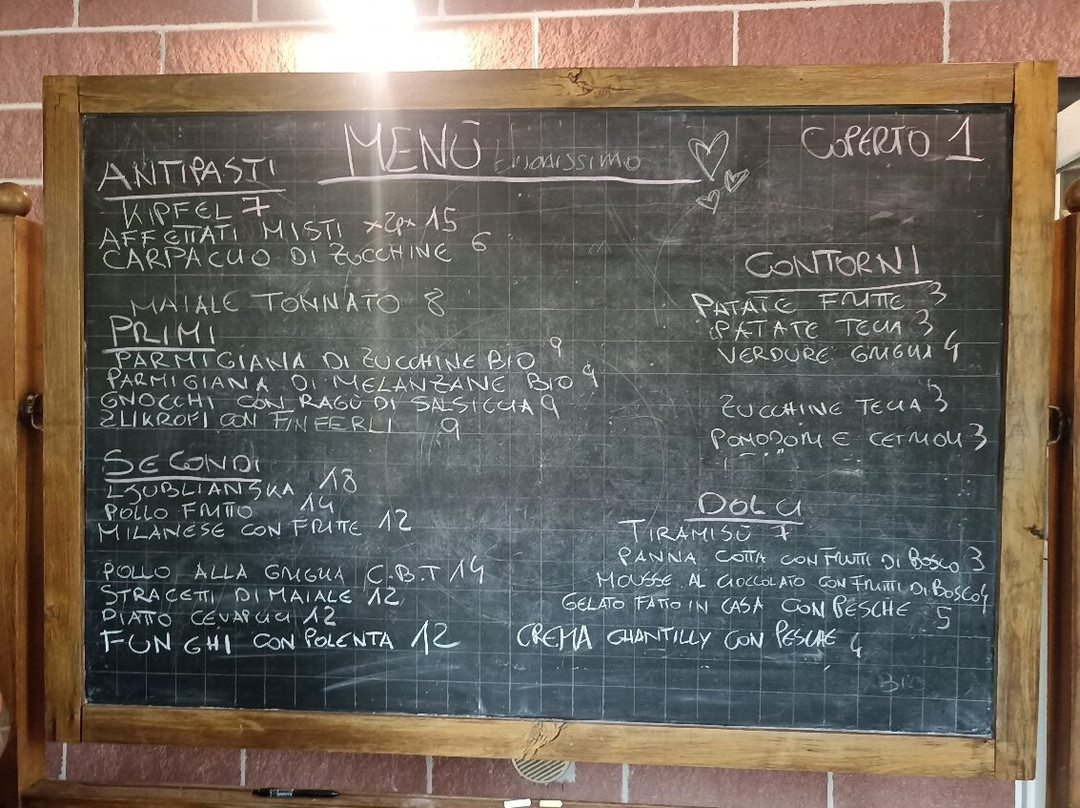 MENÙ buonissimo
COPERTO 1
ANTIPASTI
KIPFEL 7
AFFETTATI MISTI x2px 15
CARPACCIO DI ZUCCHINE 6
MAIALE TONNATO 8
PRIMI
PARMIGIANA DI ZUCCHINE BIO 9
PARMIGIANA DI MELANZANE BIO 9
GNOCCHI CON RAGÙ DI SALSICCIA 9
ZLIKROFI CON FINFERLI 9
SECONDI
LJUBLIANSKA 18
POLLO FRITTO 14
MILANESE CON FRITTE 12
POLLO ALLA GRIGLIA C.B.T 14
STRACETI DI MAIALE 12
PIATTO CEVAPCICI 12
FUNGHI CON POLENTA 12
CONTORNI
PATATE FRITTE 3
PATATE TECIA 3
VERDURE GRIGLIA 4
ZUCCHINE TECIA 3
POMODORI E CETRIOLI 3
DOLCI
TIRAMISÙ 7
PANNA COTTA CON FRUTTI DI BOSCO 3
MOUSSE AL CIOCCOLATO CON FRUTTI DI BOSCO 4
GELATO FATTO IN CASA CON PESCHE 5
CREMA CHANTILLY CON PESCHE 4